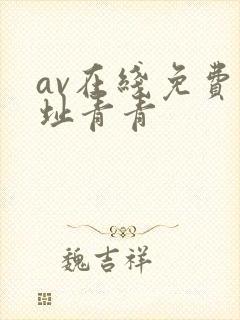 av在綫免費
址青青
魏吉祥